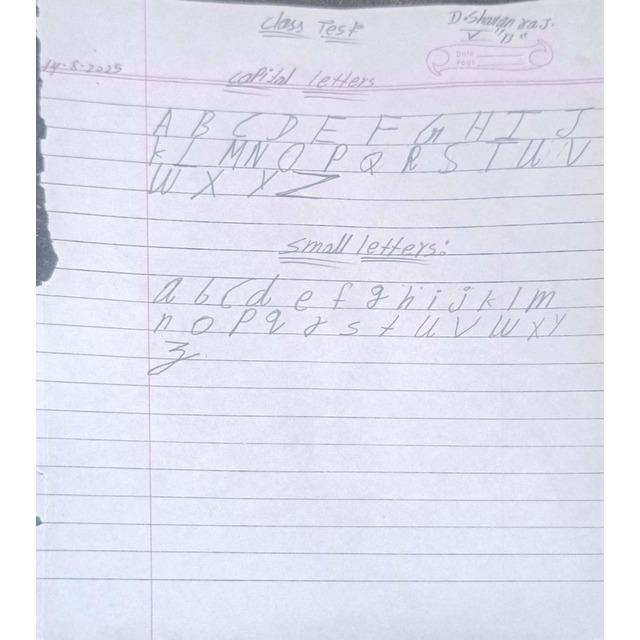 Class Test
D. Sharan raj.
V "D"
Date
Page
14-8-2025
Capital letters
A B C D E F G H I J
K L M N O P Q R S T U V
W X Y Z
Small letters:
a b c d e f g h i j k l m
n o p q r s t u v w x y
z